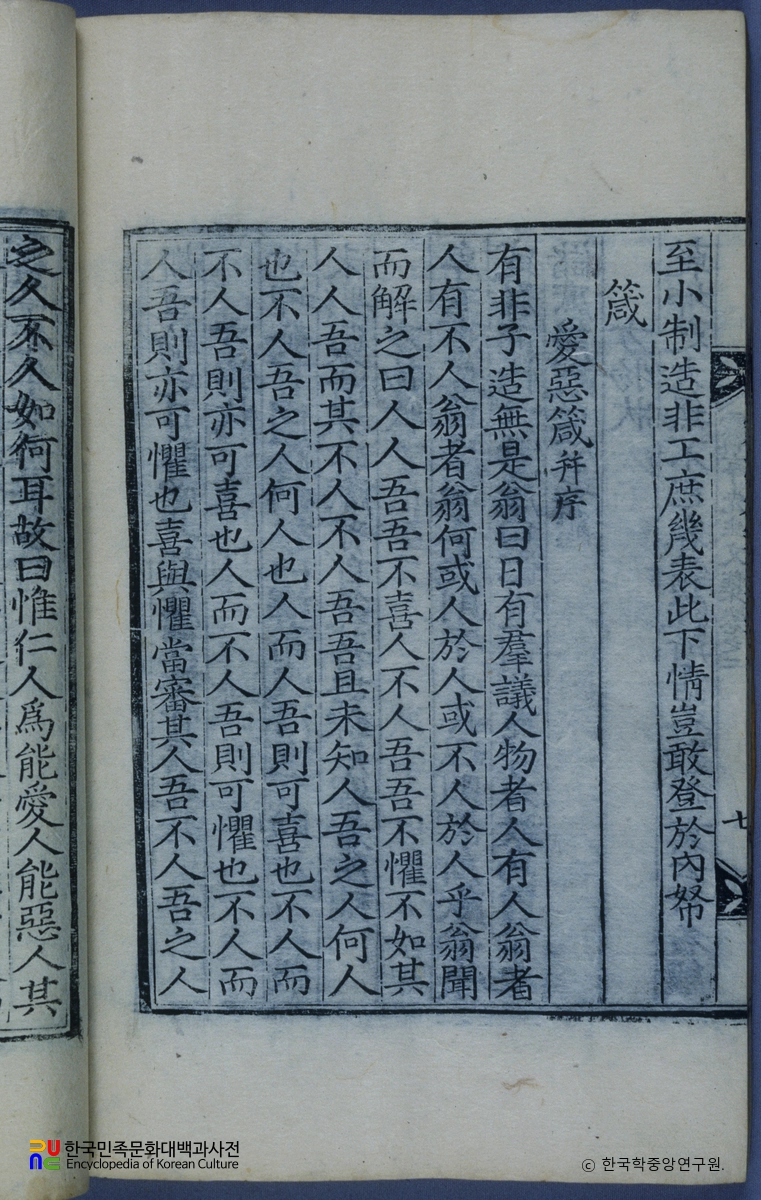 至小制造非工庶幾表此下情豈敢登於內帑
箴
愛惡箴并序
有非子造無是翁曰日有羣議人物者人有人翁者
人有不人翁者翁何或人於人或不人於人乎翁聞
而解之曰人人吾吾不喜人不人吾吾不懼不如其
人人吾而其不人不人吾吾且未知人吾之人何人
也不人吾之人何人也人而人吾則可喜也不人而
不人吾則亦可喜也人而不人吾則可懼也不人而
人吾則亦可懼也喜與懼當審其人吾不人吾之人
之人不人如何耳故曰惟仁人爲能愛人能惡人其
七
한국민족문화대백과사전
Encyclopedia of Korean Culture
ⓒ 한국학중앙연구원.